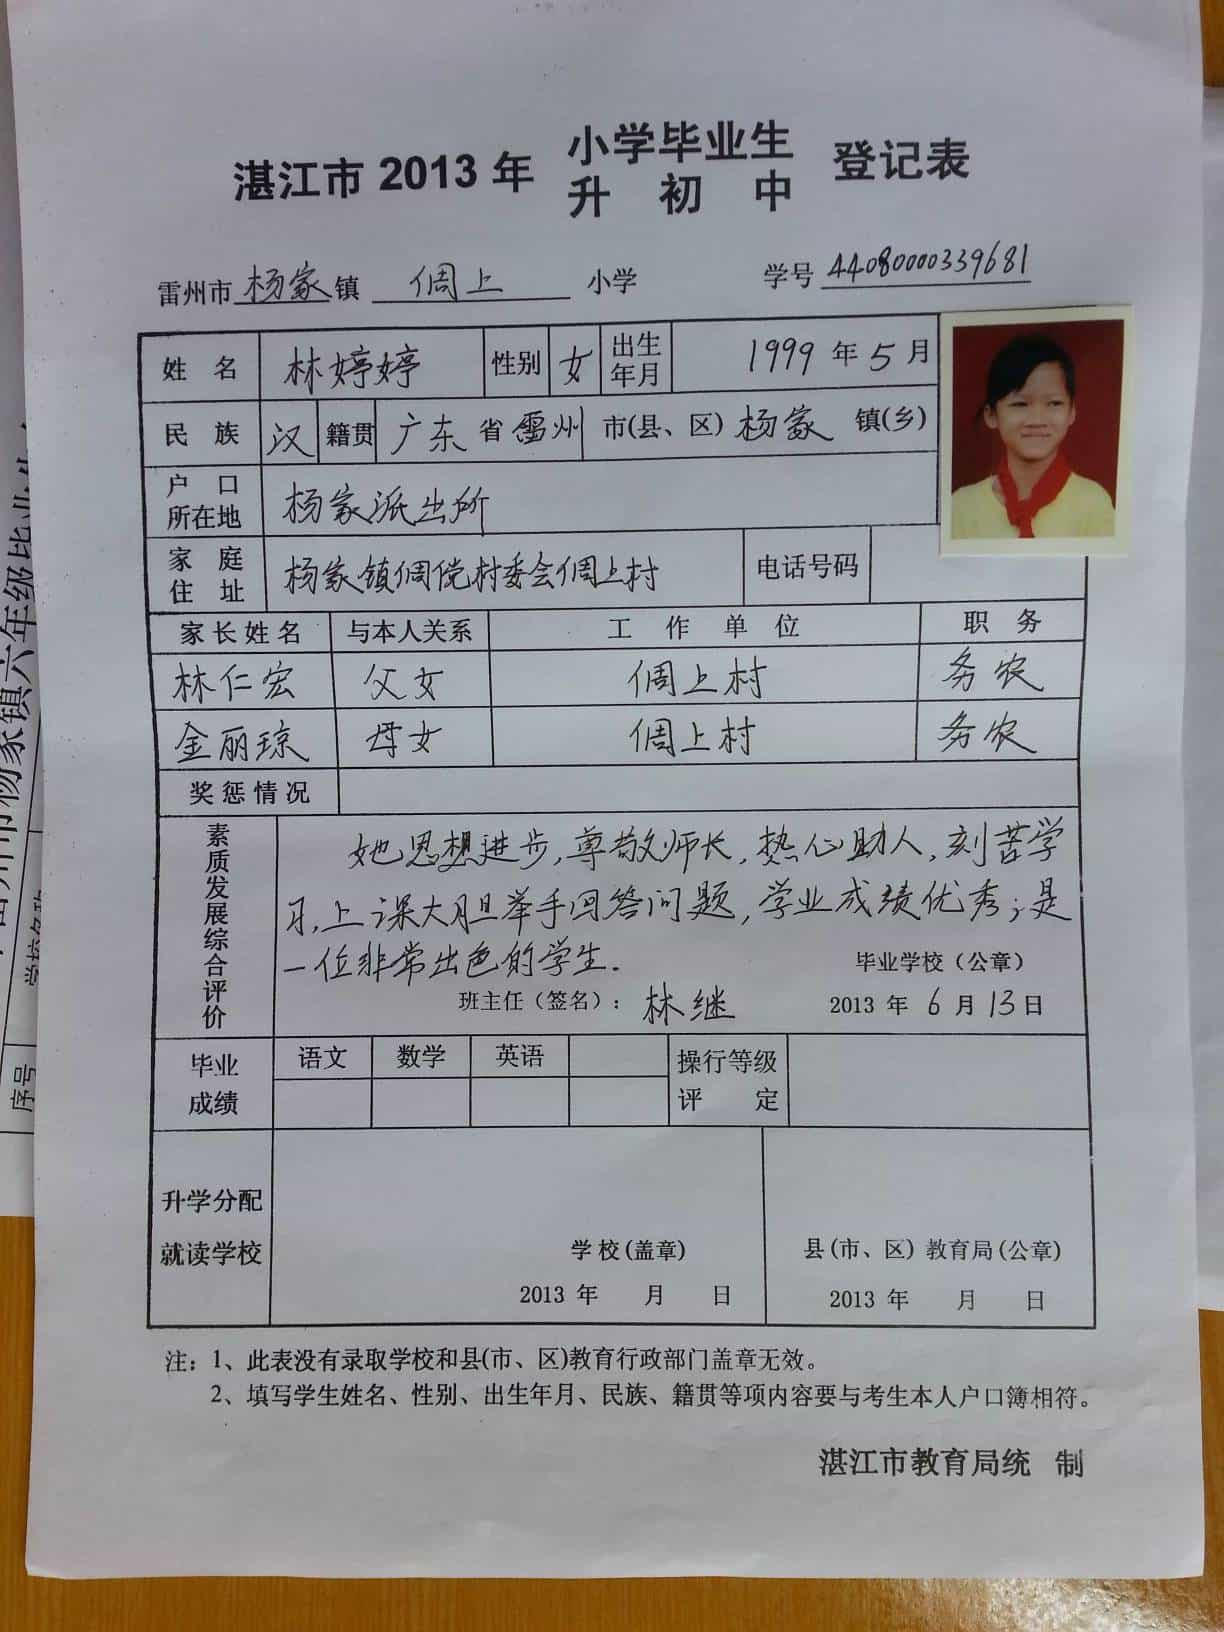 湛江市 2013 年 小学毕业生 登记表
升 初 中
雷州市 杨家 镇 倜上 小学 学号 44080000339681
姓 名 林婷婷 性别 女 出生年月 1999 年 5 月
民 族 汉 籍贯 广东 省 雷州 市(县、区) 杨家 镇(乡)
户 口 所在地 杨家派出所
家 庭 住 址 杨家镇倜傥村委会倜上村 电话号码
家长姓名 与本人关系 工 作 单 位 职 务
林仁宏 父女 倜上村 务农
金丽琼 母女 倜上村 务农
奖惩情况
素质发展综合评价
她思想进步,尊敬师长,热心助人,刻苦学
习,上课大胆举手回答问题,学业成绩优秀;是
一位非常出色的学生.
毕业学校（公章）
班主任（签名）： 林继 2013 年 6 月 13 日
毕业 成绩 语文 数学 英语 操行等级 评 定
升学分配
就读学校
学 校 (盖章) 县 (市、区) 教育局 (公章)
2013 年 月 日 2013 年 月 日
注：1、此表没有录取学校和县(市、区)教育行政部门盖章无效。
2、填写学生姓名、性别、出生年月、民族、籍贯等项内容要与考生本人户口簿相符。
湛江市教育局统 制
序号